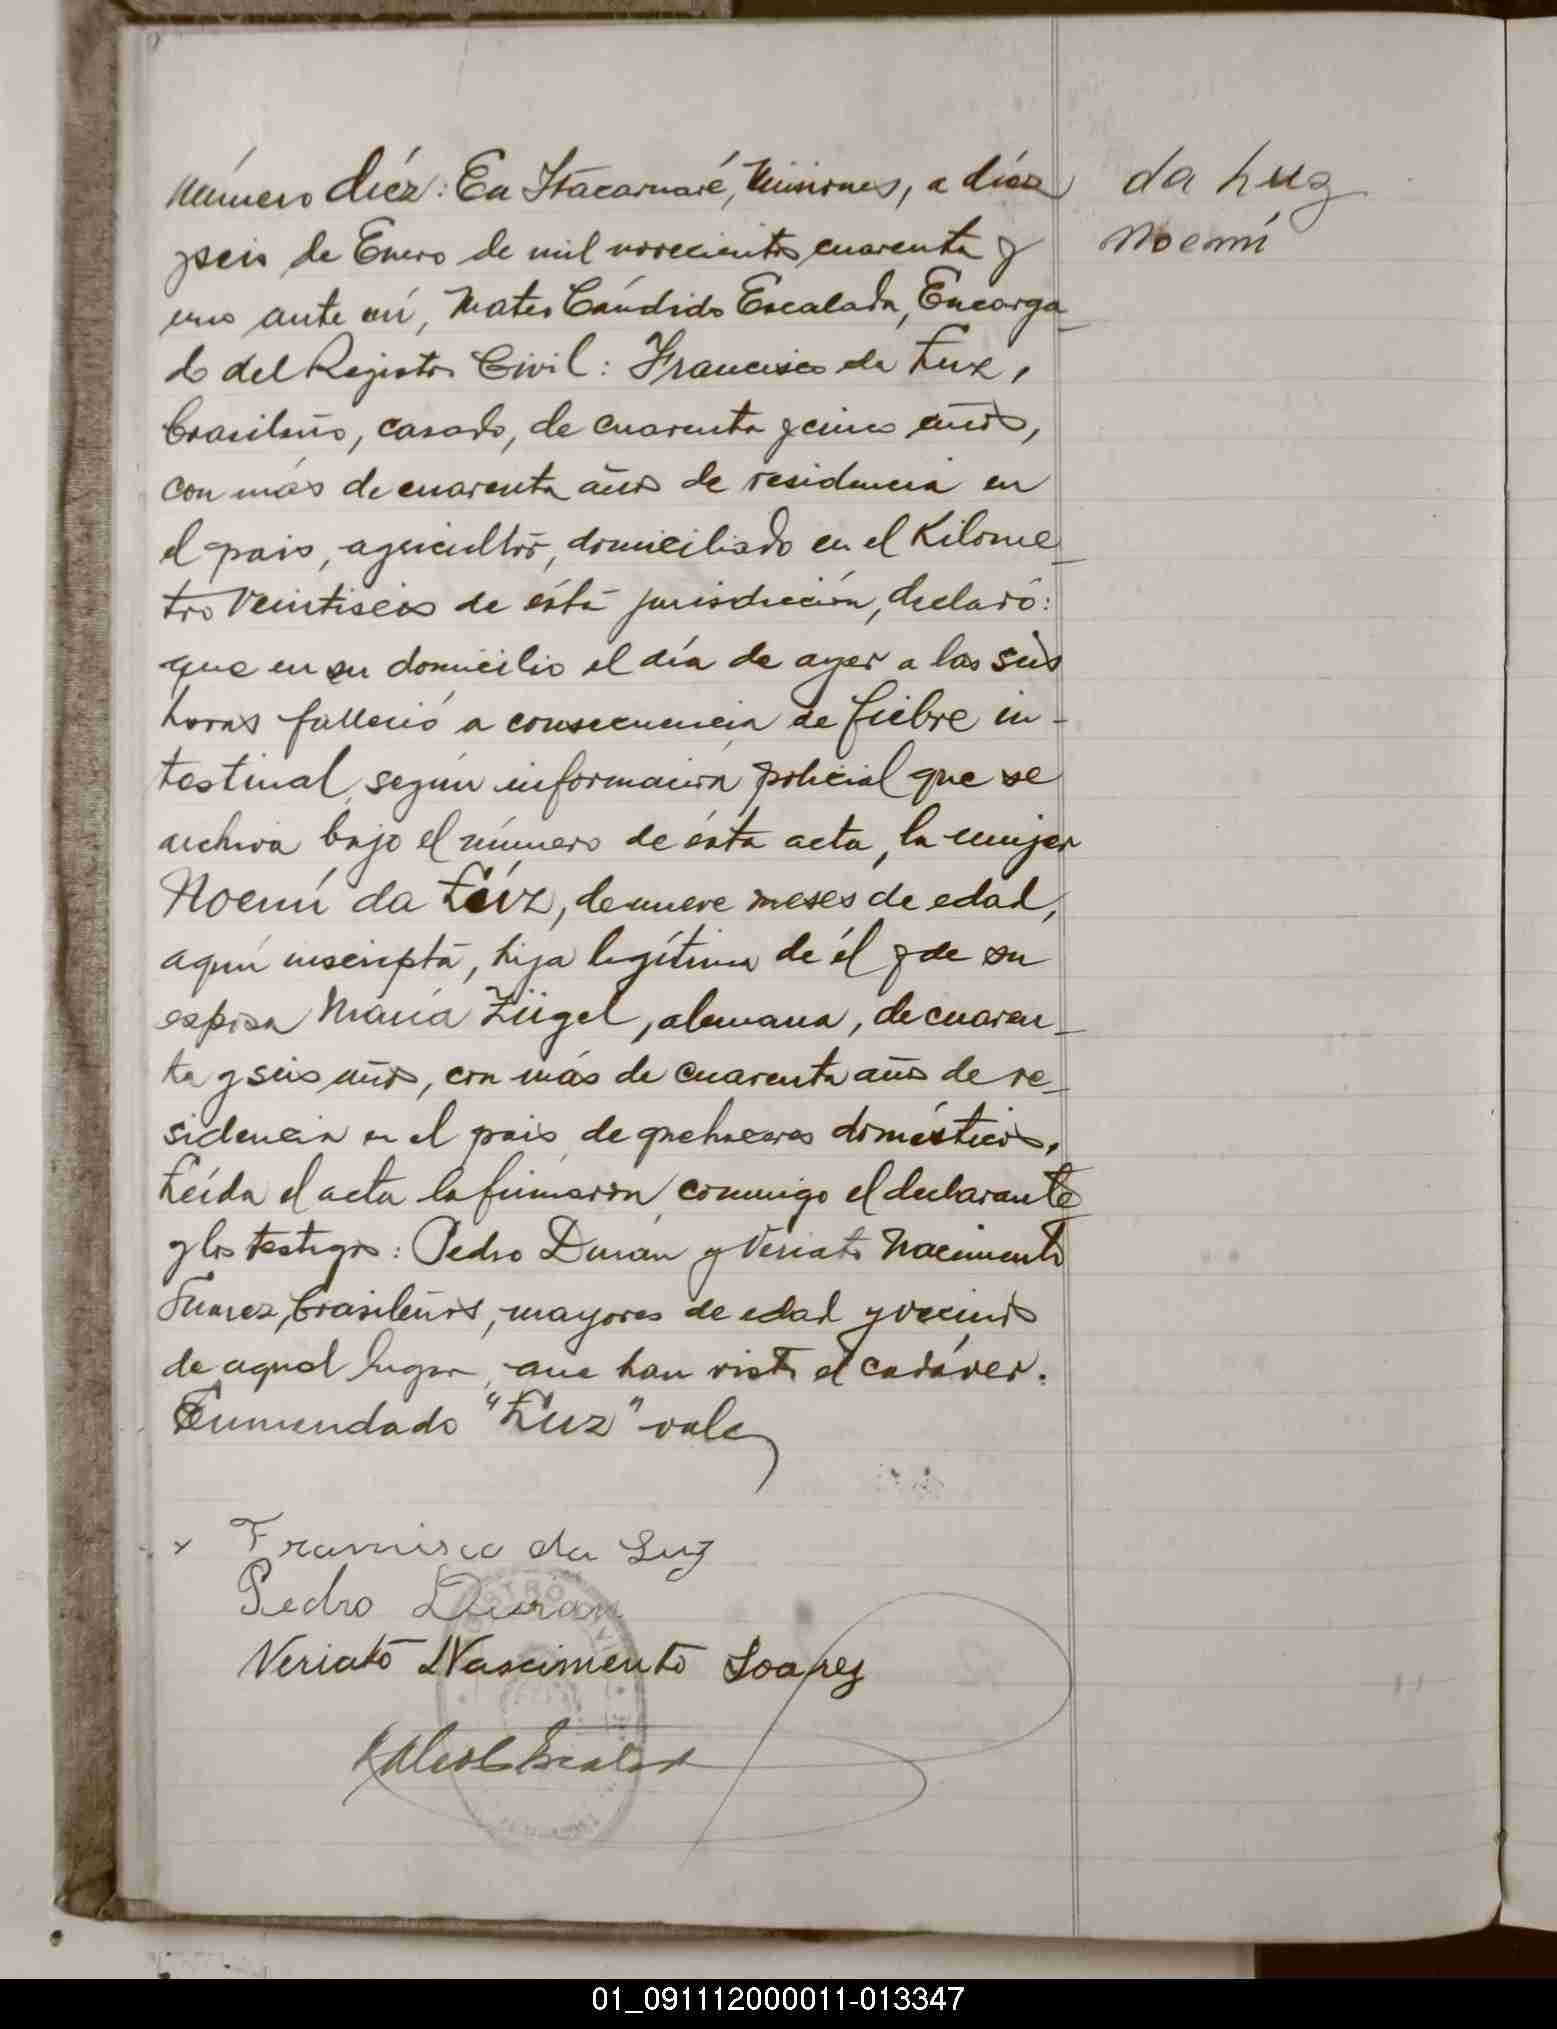 Número diéz: En Itacaruaré, Misiones, a diéz
y seis de Enero de mil novecientos cuarenta y
uno ante mí, Mateo Cándido Escalada, Encarga_
do del Registro Civil: Francisco da Luz,
brasileño, casado, de cuarenta y cinco años,
con más de cuarenta años de residencia en
el pais, agricultor, domiciliado en el Kilome_
tro Veintiseis de ésta jurisdicción, declaró:
que en su domicilio el día de ayer a las seis
horas falleció a consecuencia de fiebre in-
testinal, según información policial que se
archiva bajo el número de ésta acta, la mujer
Noemí da Lúz, de nueve meses de edad,
aquí inscripta, hija legítima de él y de su
esposa María Zügel, alemana, de cuaren_
ta y seis años, con más de cuarenta años de re_
sidencia en el pais, de quehaceres domésticos.
Leída el acta la firmaron conmigo el declarante
y los testigos: Pedro Durán y Veriato Nacimento
Suarez, brasileños, mayores de edad y vecinos
de aquel lugar, que han visto el cadáver.
Enmendado "Luz" vale
da Luz
Noemí
x Francisco da Luz
Pedro Duran
Veriato Nascimento Soarez
01_091112000011-013347